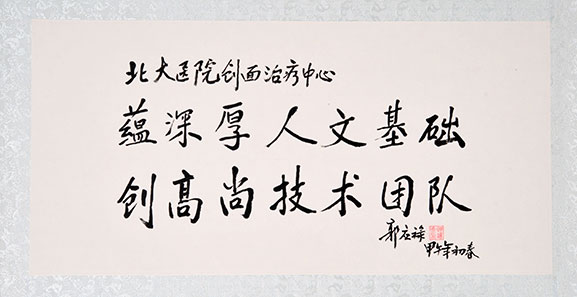 北大医院创面治疗中心
蕴深厚人文基础
创高尚技术团队
郭应禄
甲午年初春